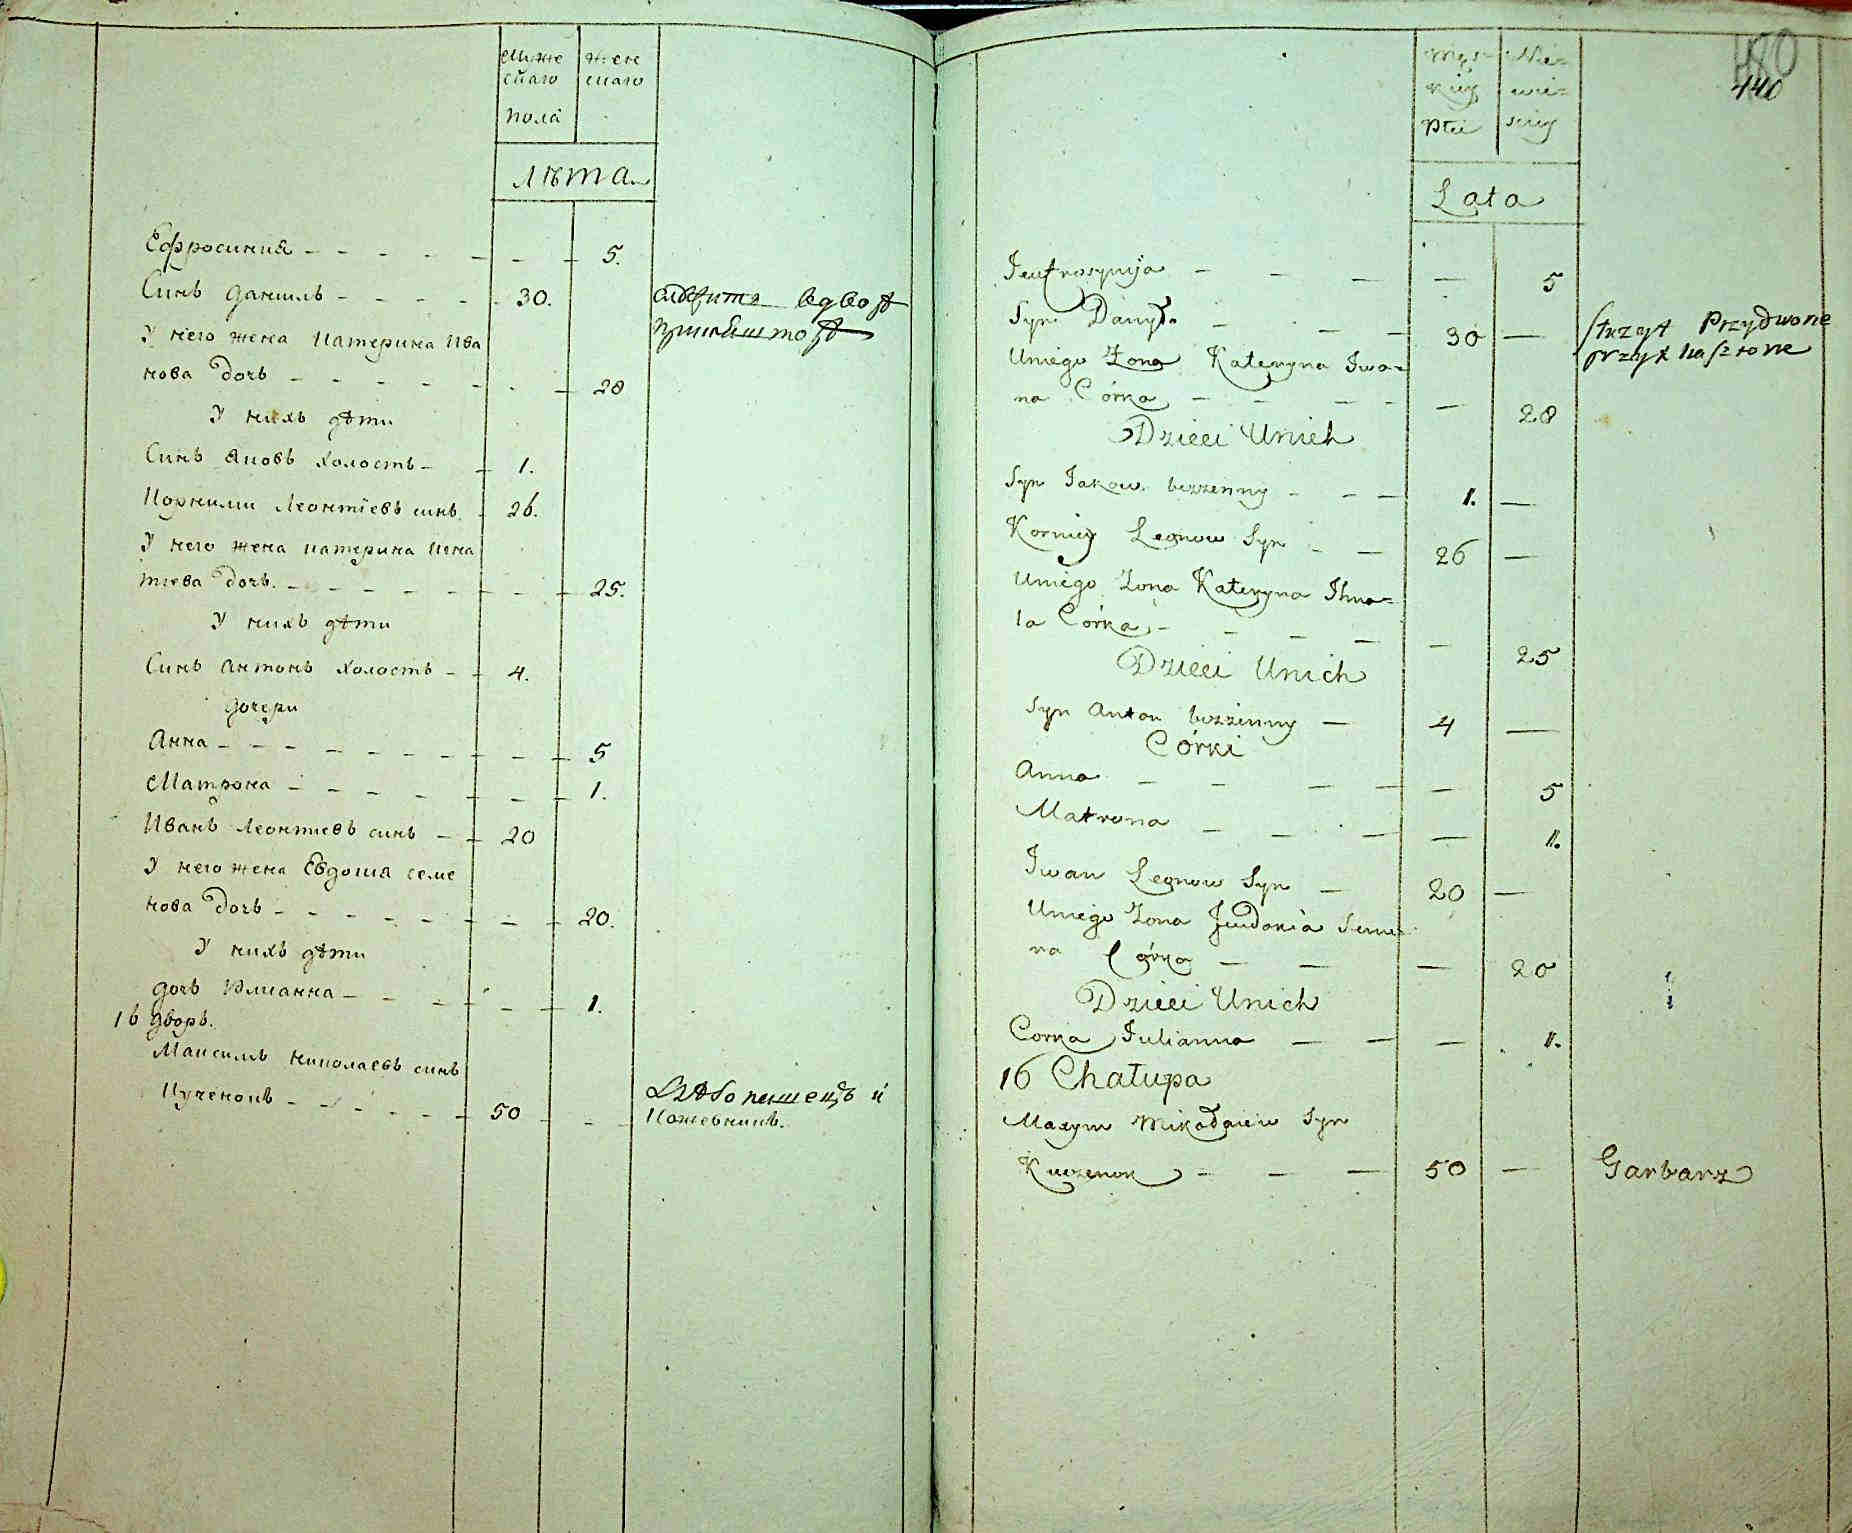 Муже
скаго
пола
Жен
скаго
Лѣта
Ефросиния - - - - - - - 5.
Синъ Данилъ - - - - 30.
У него жена Катерина Ива
нова дочь - - - - - - - 28
У нихъ дѣти
Синъ Яковъ холостъ - - 1.
Корнили Леонтіевъ синъ - 26.
У него жена Катерина Игна
тиева дочь. - - - - - - - 25.
У нихъ дѣти
Синъ Антонъ холостъ - - 4.
дочери
Анна - - - - - - - - - 5
Матрона - - - - - - - - 1.
Иванъ Леонтиевъ синъ - - 20
У него жена Евдокия Семе
нова дочь - - - - - - - - 20.
У нихъ дѣти
дочь Улианна - - - - - - 1.
16 дворъ.
Максимъ Николаевъ синъ
Кученокъ - - - - - - 50 - - -
Хлѣбопашецъ и
Кожевникъ.
440
Męs-
kiey
Płci
Nie-
wie-
sciey
Lata
Jeufrosynija - - - - 5
Syn Danyło - - - 30 —
Uniego Żona Kateryna Iwa=
na Córka - - - - — 28
Dzieci Unich
Syn Jakow bezżenny - - - 1. —
Korniey Leonow Syn - - 26 —
Uniego Żona Kateryna Ihna=
ta Córka - - - - — 25
Dzieci Unich
Syn Anton bezżenny — 4 —
Córki
Anna - - - - — 5
Matrona - - - — 1.
Iwan Leonow Syn — 20 —
Uniego Żona Jeudokia Seme-
na Córka — — — 20
Dzieci Unich
Corka Julianna — — — 1.
16 Chałupa
Maxym Mikołaiew Syn
Kuczenok - - — 50 — Garbarz